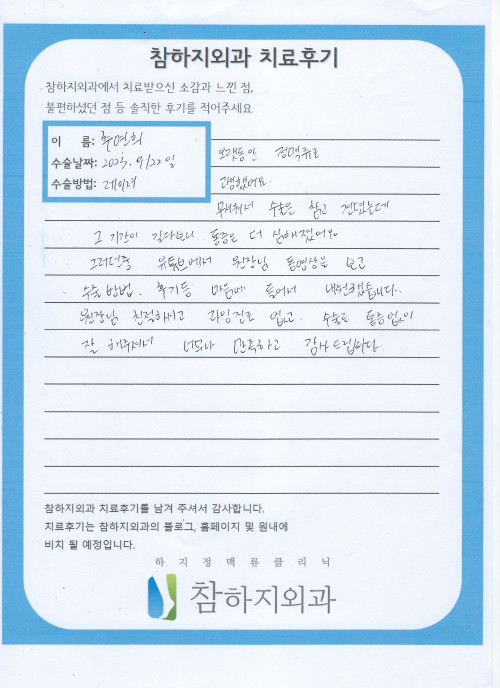 참하지외과 치료후기
참하지외과에서 치료받으신 소감과 느낀 점,
불편하셨던 점 등 솔직한 후기를 적어주세요
이 름: 주연희
수술날짜: 2023. 9/22일
수술방법: 레이저
오랫동안 정맥류로
고생했어요.
무서워서 수술은 참고 견뎠는데
그 기간이 길다보니 통증은 더 심해졌어요
그러던중 유튜브에서 원장님 동영상을 보고
수술방법. 후기등 마음에 들어서 내원했습니다.
원장님 친절하시고 과잉진료 없고. 수술도 통증없이
잘 해주셔서 너무나 만족하고 감사드립니다.
참하지외과 치료후기를 남겨 주셔서 감사합니다.
치료후기는 참하지외과의 블로그, 홈페이지 및 원내에
비치 될 예정입니다.
하지정맥류클리닉
참하지외과